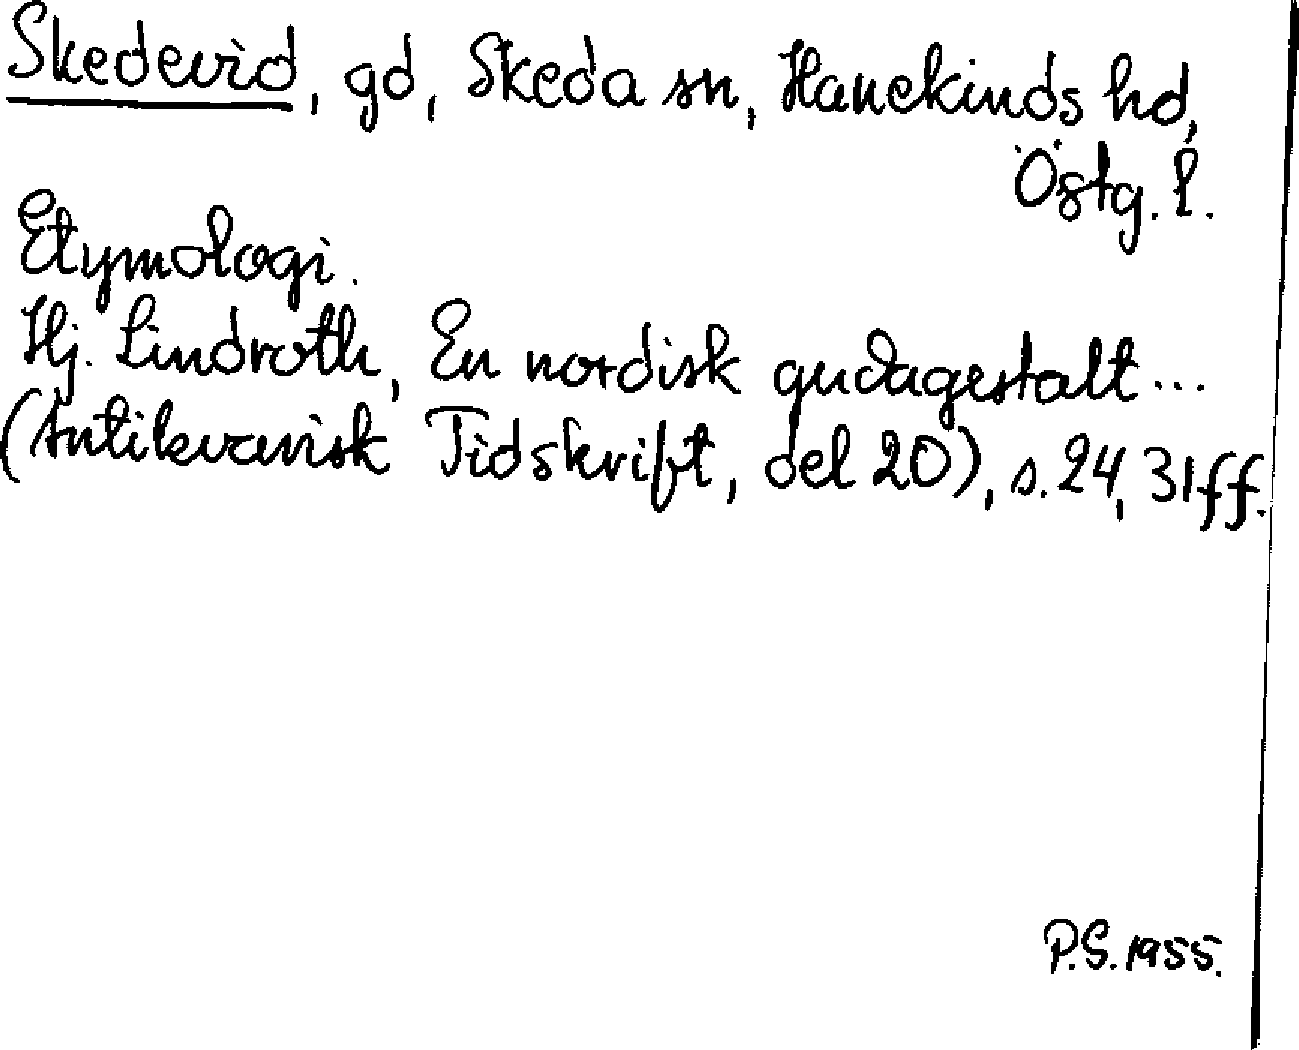 Skedevid, gd, Skeda sn, Hanekinds hd,
Östg. l.
Etymologi.
Hj. Lindroth, En nordisk gudagestalt...
(Antikvarisk Tidskrift, del 20), s. 24, 31ff.
P.S. 1955.